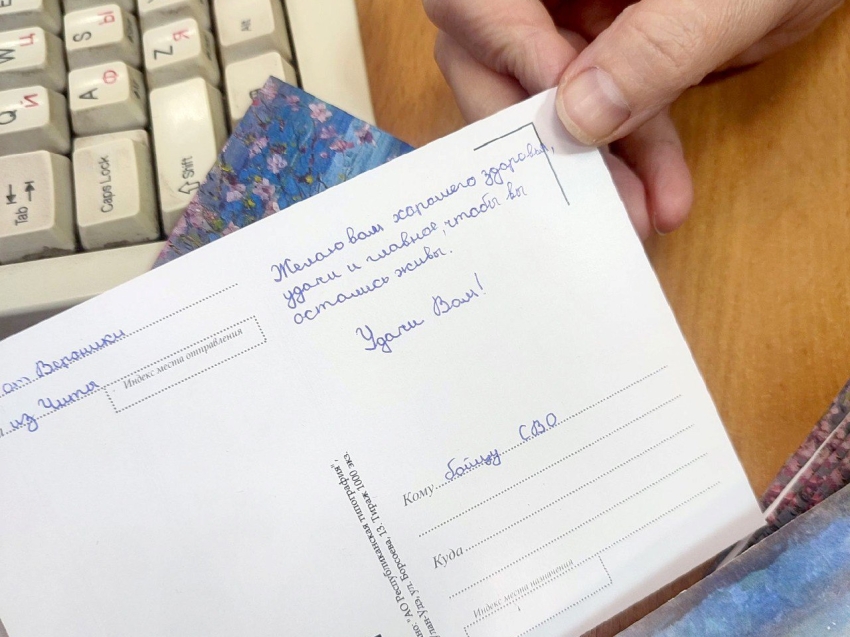 Q Й
W Ц
A Ф
S Ы
Z Я
Alt
Tab
Caps Lock
Shift
Желаю вам харашего здоровья,
удачи и главное, чтобы вы
остались живы.
Удачи Вам!
от Вероники
из Читя
Индекс места отправления
Кому бойцу СВО
Куда
Индекс места назначения
но: "АО Республиканская типография",
лан-Удэ, ул. Борсоева, 13. Тираж 1000 экз.